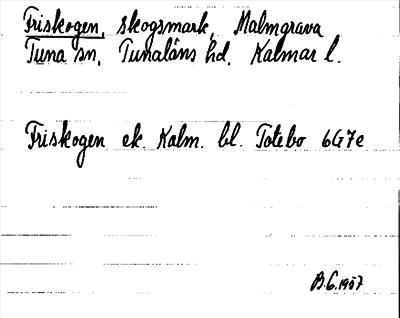 Friskogen, skogsmark, Malmgrava
Tuna sn, Tunaläns hd, Kalmar l.
Friskogen ek. Kalm. bl. Totebo 6G7e
B.G. 1957